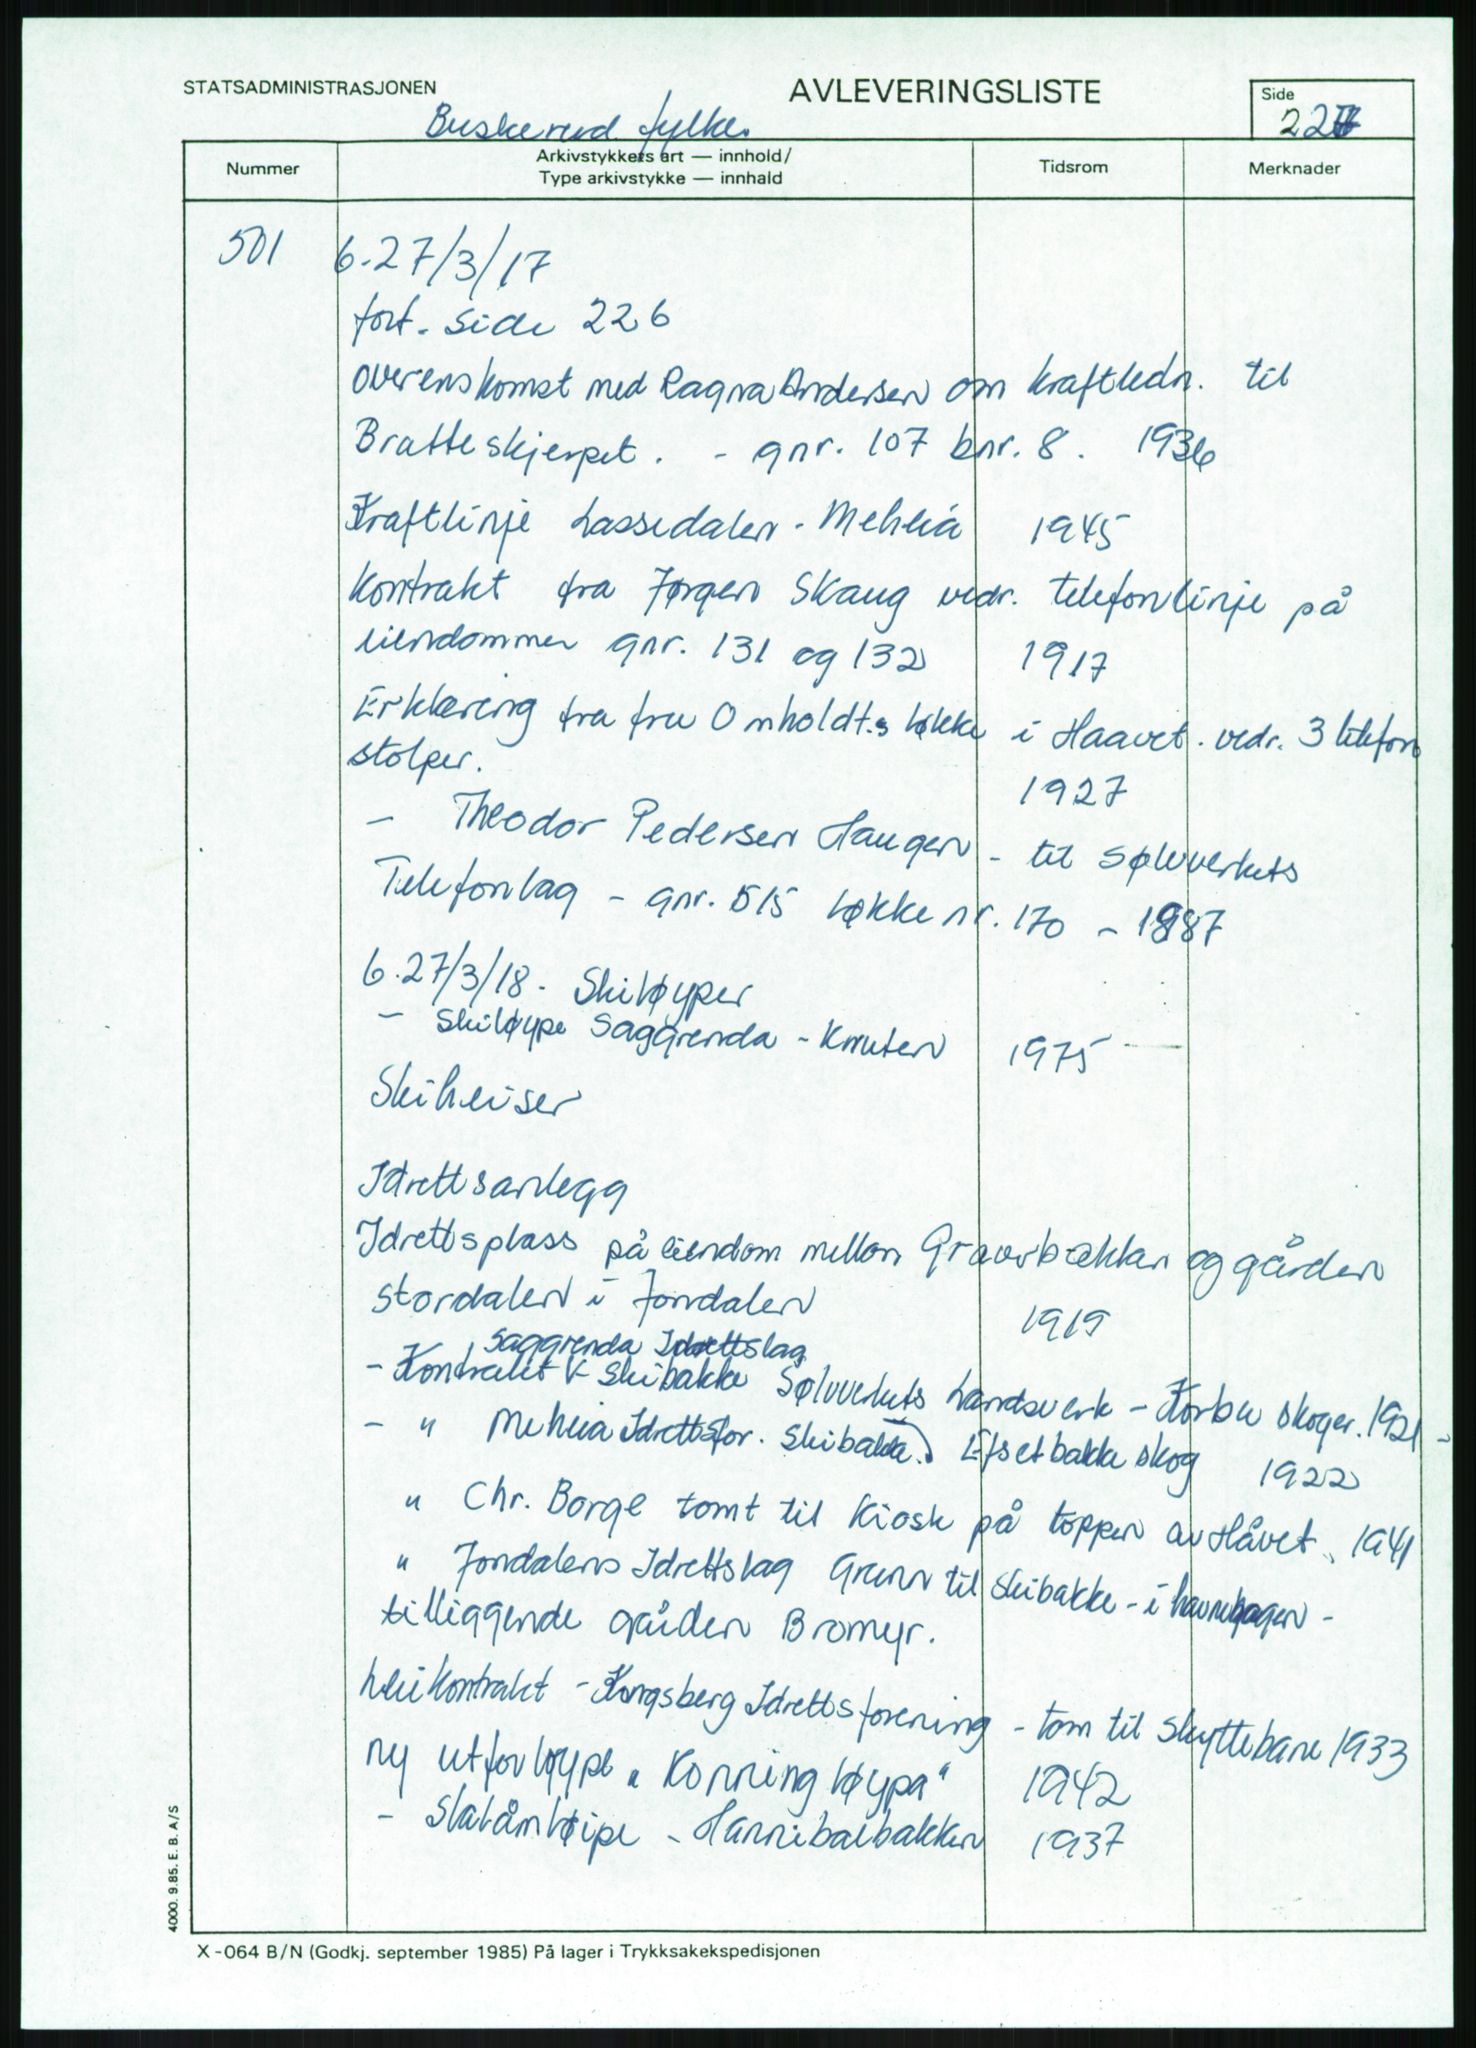 STATSADMINISTRASJONEN
AVLEVERINGSLISTE
Side
227
Buskerud fylke
Nummer
Arkivstykkets art — innhold/
Type arkivstykke — innhald
Tidsrom
Merknader
501 6.27/3/17
fort. side 226
overenskomst med Ragna Andersen om kraftledn. til
Bratteskjerpet. - gnr. 107 bnr. 8. 1936
Kraftlinje Lassedalen - Meheia 1945
Kontrakt fra Jørgen Skaug vedr. telefonlinje på
eiendommer gnr. 131 og 132 1917
Erklæring fra fru Omholdt.s løkke i Haavet. vedr. 3 telefon
stolper. 1927
- Theodor Pedersen Haugen - til Sølvverkets
Telefonlag - gnr. 515 Løkke nr. 170 - 1987
6.27/3/18. Skiløyper
- Skiløype Saggrenda - Knuten 1975
Skiheiser
Idrettsanlegg
Idrettsplass på eiendom mellom Gravbekken og gården
Stordalen i Jondalen 1919
Saggrenda Idrettslag
- Kontrakt Skibakke Sølvverkets Landsverk - Korbu skoger. 1921 -
- " Meheia Idrettsfor. Skibakke Efsetbakke skog 1922
" Chr. Borge tomt til Kiosk på toppen av Håvet. 1941
" Jondalens Idrettslag Grunn til skibakke - i havnehagen -
tilliggende gården Bromyr.
Leikontrakt - Kongsberg Idrettsforening - tom til skyttebane 1933
ny utforløype „Konningløypa" 1942
- Slalåmløipe - Hannibalbakken 1937
4000. 9.85. E. B. A/S
X-064 B/N (Godkj. september 1985) På lager i Trykksakekspedisjonen